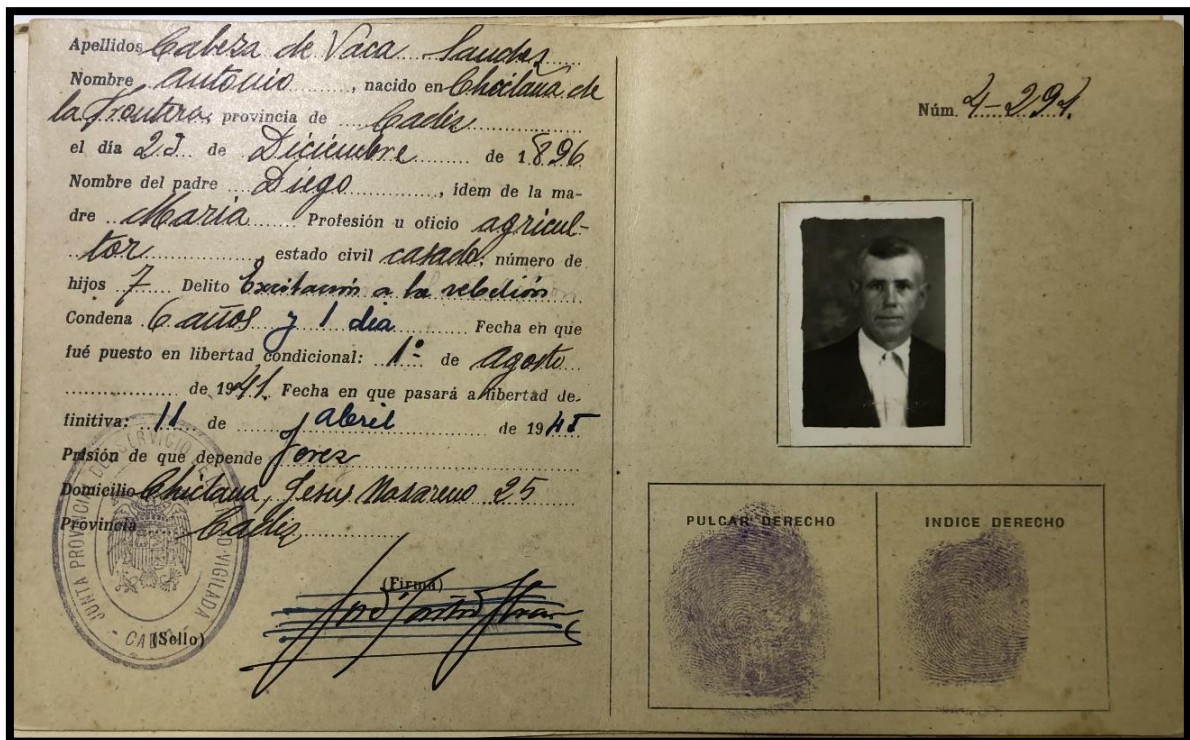 Apellidos Cabeza de Vaca Sanchez
Nombre Antonio, nacido en Chiclana de
la Frontera, provincia de Cadiz
el día 23 de Diciembre de 1896
Nombre del padre Diego, idem de la ma-
dre Maria Profesión u oficio agricul-
tor, estado civil casado, número de
hijos 7 Delito Excitación a la rebelión
Condena 6 años y 1 dia Fecha en que
fué puesto en libertad condicional: 1º de Agosto
de 1941. Fecha en que pasará a libertad de-
finitiva: 11 de abril de 1945
Prisión de que depende Jerez
Domicilio Chiclana, Jesus Nasareno 25
Provincia Cadiz
(Firma)
(Sello)
JUNTA PROVINCIAL DEL SERVICIO DE LIBERTAD VIGILADA - CADIZ
Núm. 4-291.
PULGAR DERECHO
INDICE DERECHO